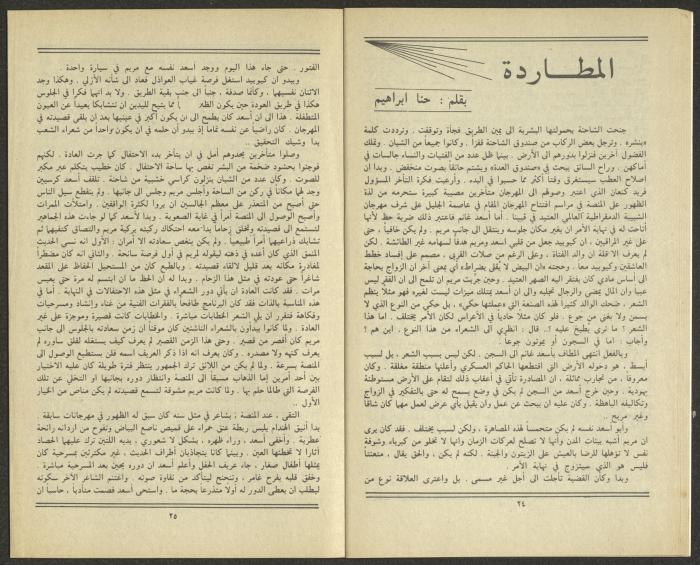 المطــاردة
بقلم : حنا ابراهيم
جنحت الشاحنة بحمولتها البشرية الى يمين الطريق فجأة وتوقفت . وترددت كلمة
«بنشر» . وترجل بعض الركاب من صندوق الشاحنة قفزا . وكانوا جميعاً من الشبان . وتملك
الفضول آخرين فنزلوا بدورهم الى الأرض . بينما ظل عدد من الفتيات والنساء جالسات في
أماكنهن . وراح السائق يبحث في «صندوق العدة» ويشتم حانقاً بصوت منخفض . وبدا ان
اصلاح العطب سيستغرق وقتاً أكثر مما حسبوا في البدء . وأرعبت فكرة التأخر المسؤول
فريد كنعان الذي اعتبر وصولهم الى المهرجان متأخرين مصيبة كبيرة ستحرمه من لذة
الظهور على المنصة في مراسم افتتاح المهرجان المقام في عاصمة الجليل على شرف مهرجان
الشبيبة الدمقراطية العالمي العتيد في فيينا . أما أسعد غانم فاعتبر ذلك ضربة حظ لأنها
أتاحت له في نهاية الأمر ان يغير مكان جلوسه وينتقل الى جانب مريم . ولم يكن خافياً ، حتى
على غير المراقبين ، ان كيوبيد جعل من قلبي أسعد ومريم هدفاً لسهامه غير الطائشة . لكن
لم يعرف الا قلة ان والد الفتاة ، وعلى الرغم من صلات القربى ، مصمم على إفساد خطط
العاشقين وكيوبيد معا . وحجته «ان البيض لا يقلى بضراط» أي بمعنى آخر ان الزواج بحاجة
الى أساس مادي كان يفتقر اليه الصهر العتيد . وحين جربت مريم ان تلمح الى ان الفقر ليس
عيبا وان المال يمضي والرجال تخليه والى ان أسعد يمتلك ميزات ليست لغيره فهو مثلاً ينظم
الشعر ، ضحك الوالد كثيرا لهذه الصنعة التي «عملتها حكي» ، بل حكي من النوع الذي لا
يسمن ولا يغني من جوع . فلو كان مثلا حادياً في الأعراس لكان الأمر يختلف . اما هذا
الشعر ؟ ما ترى يطبخ عليه ؟ . قال : انظري الى الشعراء من هذا النوع ، اين هم ؟
وأجاب : اما في السجون أو يموتون جوعا .
وبالفعل انتهى المطاف بأسعد غانم الى السجن . لكن ليس بسبب الشعر ، بل لسبب
أبسط ، هو دخوله الأرض التي اقتطعها الحاكم العسكري وأعلنها منطقة مغلقة . وكان
معروفاً ، من تجارب مماثلة ، ان المصادرة تأتي في أعقاب ذلك لتقام على الأرض مستوطنة
يهودية . وحين خرج أسعد من السجن لم يكن في وضع يسمح له حتى بالتفكير في الزواج
وتكاليفه الباهظة . وكان عليه ان يبحث عن عمل وان يقبل بأي عرض لعمل مهما كان شاقاً
وغير مربح ..
وأبو أسعد نفسه لم يكن متحمساً لهذه المصاهرة ، ولكن لسبب يختلف . فقد كان يرى
ان مريم أشبه ببنات المدن وأنها لا تصلح لعركات الزمان وانها لا تخلو من كبرياء وشوفة
نفس لا تؤهلها للرضا بالعيش على الزيتون والجبنة . لكنه لم يكن ، والحق يقال ، متعنتاً
فليس هو الذي سيتزوج في نهاية الأمر .
وبدا وكأن القضية تأجلت الى أجل غير مسمى . بل واعترى العلاقة نوع من
٢٤
الفتور . حتى جاء هذا اليوم ووجد أسعد نفسه مع مريم في سيارة واحدة .
ويبدو ان كيوبيد استغل فرصة غياب العواذل فعاد الى شأنه الأزلي . وهكذا وجد
الاثنان نفسيهما ، وكأنما صدفة ، جنباً الى جنب بقية الطريق . ولا بد انهما فكرا في الجلوس
هكذا في طريق العودة حين يكون الظـ مما يتيح لليدين ان تتشابكا بعيداً عن العيون
المتطفلة . هذا الى ان أسعد كان يطمح الى ان يكون أكبر في عينيها بعد ان يلقى قصيدته في
المهرجان . كان راضياً عن نفسه تماما إذ يبدو أن حلمه في ان يكون واحدا من شعراء الشعب
بدا وشيك التحقيق ..
وصلوا متأخرين يحدوهم أمل في ان يتأخر بدء الاحتفال كما جرت العادة . لكنهم
فوجئوا بحشود ضخمة من البشر تغص بها ساحة الاحتفال . كان خطيب يتكلم عبر مكبر
للصوت . وكان عدد من الشبان يزلون كراسي خشبية من شاحنة . تلقف أسعد كرسيين
وجد لهما مكاناً في ركن من الساحة وأجلس مريم وجلس الى جانبها . ولم ينقطع سيل الناس
حتى أصبح من المتعذر على معظم الجالسين ان يروا لكثرة الواقفين . وامتلأت الممرات
وأصبح الوصول الى المنصة أمراً في غاية الصعوبة . وبدا لأسعد كما لو جاءت هذه الجماهير
لتستمع الى قصيدته وتخلق زحاماً يدامعه احتكاك ركبته بركبة مريم والتصاق كتفيهما ثم
تشابك ذراعيهما أمراً طبيعياً . ولم يكن ينغص سعادته الا أمران : الأول انه نسي الحديث
المنمق الذي كان أعده في ذهنه ليقوله لمريم في أول فرصة سانحة . والثاني انه كان مضطراً
لمغادرة مكانه بعد قليل لالقاء قصيدته . وبالطبع كان من المستحيل الحفاظ على المقعد
شاغراً حتى عودته في مثل هذا الزحام . وبدا له ان الحظ ما ان ابتسم له مرة حتى يعبس
مرات . فقد كانت العادة ان يأتي دور الشعراء في مثل هذه الاحتفالات في النهاية . أما في
هذه المناسبة بالذات فقد كان البرنامج طافحاً بالفقرات الفنية من غناء وإنشاد ومسرحيات
وفكاهة فتقرر ان يلي الشعر الخطابات مباشرة . والخطابات كانت قصيرة وموجزة على غير
العادة . ولما كانوا يبدأون بالشعراء الناشئين كان موقناً أن زمن سعادته بالجلوس الى جانب
مريم كان أقصر من قصير . وحتى هذا الزمن القصير لم يعرف كيف يستغله لقلق ساوره لم
يعرف كنهه ولا مصدره . وكان يعرف انه اذا ذكر العريف اسمه فلن يستطيع الوصول الى
المنصة بسرعة . ولما لم يكن من اللائق ترك الجمهور ينتظر فترة طويلة كان عليه الاختيار
بين أحد أمرين إما الذهاب مسبقاً الى المنصة وانتظار دوره بجانبها او التخلي عن تلك
الفرصة التي طالما حلم بها . ولما كانت مريم مشوقة لتسمع قصيدته لم يكن مناص من الخيار
الأول ..
التقى ، عند المنصة ، بشاعر في مثل سنه كان سبق له الظهور في مهرجانات سابقة
بدا أنيق الهندام يلبس ربطة عنق حمراء على قميص ناصع البياض وتفوح من اردانه رائحة
عطرية . وأخفى أسعد ، وراء ظهره ، بشكل لا شعوري ، يديه اللتين ترك عليهما الحصاد
آثارا لا تخطئها العين . وبينما كانا يتجاذبان أطراف الحديث ، غير مكترثين بمسرحية كان
يمثلها أطفال صغار ، جاء عريف الحفل وأعلم أسعد ان دوره يحين بعد المسرحية مباشرة .
وخفق قلبه بفرح غامر ، وتنحنح ليتأكد من نقاوة صوته . واغتنم الشاعر الآخر سكوته
ليطلب ان يعطى الدور له أولا متذرعاً بحجة ما . واستحى أسعد فصمت متأدباً ، حاسباً ان
٢٥